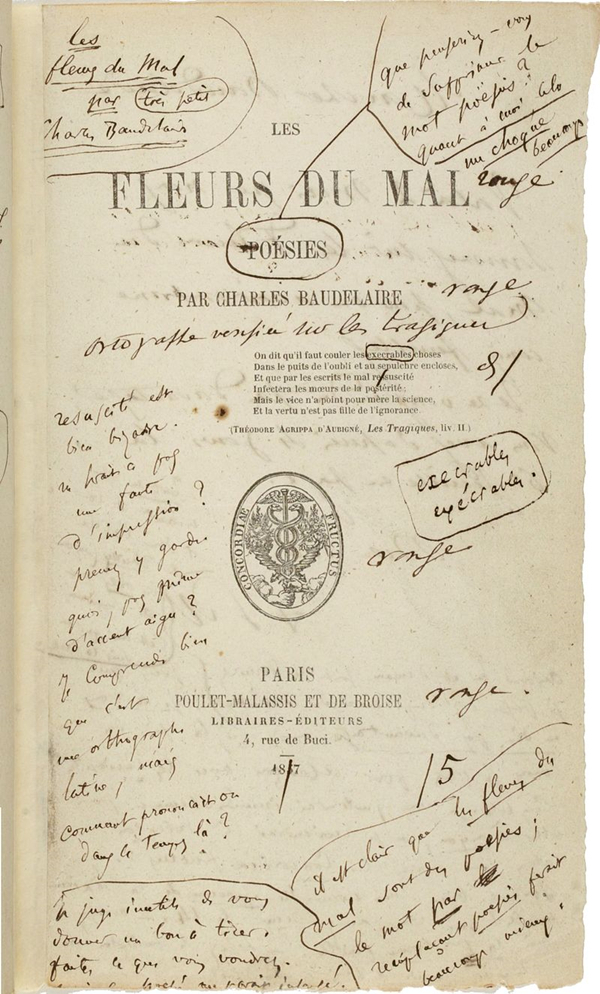 les
fleurs du Mal
par (très petit)
Charles Baudelaire
que penseriez-vous
de supprimer le
mot poésies ?
quant à moi cela
me choque
beaucoup
LES
FLEURS DU MAL
rouge.
POÉSIES
PAR CHARLES BAUDELAIRE
rouge
ortographe vérifiée sur les tragiques
On dit qu'il faut couler les execrables choses
Dans le puits de l'oubli et au sepulchre encloses,
Et que par les escrits le mal resuscité
Infectera les mœurs de la postérité ;
Mais le vice n'a point pour mère la science,
Et la vertu n'est pas fille de l'ignorance
(THÉODORE AGRIPPA D'AUBIGNÉ, Les Tragiques, liv. II)
resuscité est
bien bizarre.
ne serait-ce pas
une faute
d'impression ?
prenez y garde
quoi, pas même
d'accent aigu ?
je comprends bien
que c'est
une orthographe
latine, mais
comment prononçait-on
dans le temps là ?
execrables
exécrables.
rouge
CONCORDIÆ FRUCTUS
PARIS
POULET-MALASSIS ET DE BROISE
rouge.
LIBRAIRES-ÉDITEURS
4, rue de Buci.
1857
/5
il est clair que les fleurs du
mal sont des poésies ;
le mot par
remplaçant poésies ferait
beaucoup mieux.
Je juge inutile de vous
donner un bon à tirer.
faites ce que vous voudrez.